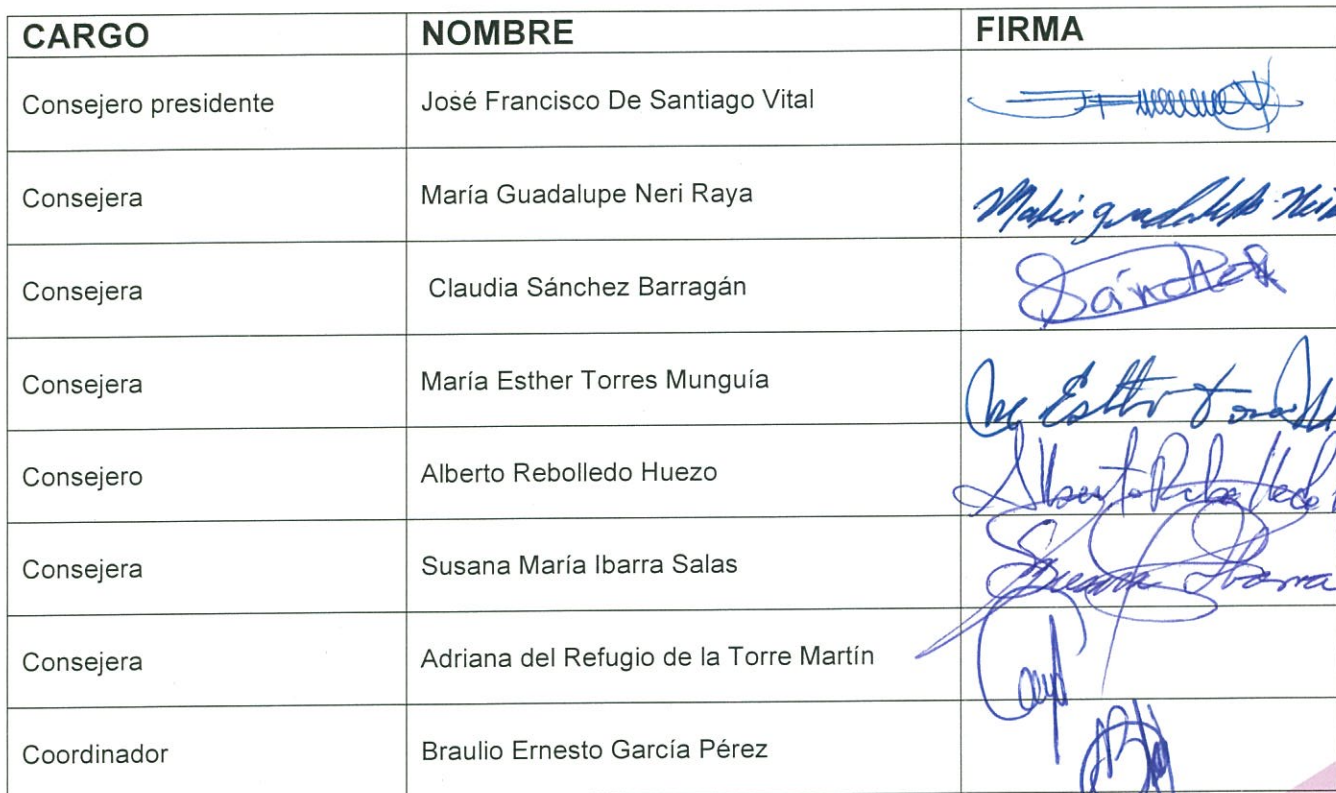 CARGO NOMBRE FIRMA
Consejero presidente José Francisco De Santiago Vital
Consejera María Guadalupe Neri Raya
Consejera Claudia Sánchez Barragán Sánchez
Consejera María Esther Torres Munguía Esther
Consejero Alberto Rebolledo Huezo Alberto
Consejera Susana María Ibarra Salas Susana Ibarra
Consejera Adriana del Refugio de la Torre Martín
Coordinador Braulio Ernesto García Pérez